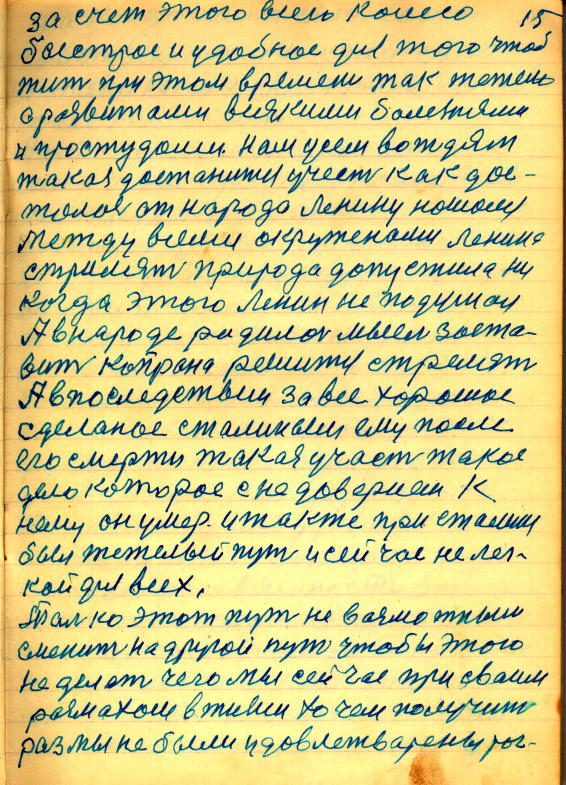 за счет этого всего колесо 15
быстрое и удобное для того чтоб
жит при этом времени так тежело
с развитами всякими болезнями
и простудами. Нам усем вождям
такая достанится участ как дос-
талос от народа Ленину нашому
между всеми окруженами Ленина
стрилят природа допустила ни
когда этого Ленин не подумал
А в народе радилос мысл заста-
вит Каплана решится стрелят
А впоследствии за все хорошое
сделаное сталиным ему после
его смерти такая участ такое
дело которое с недоверием к
нему он умер. и так же при сталини
был тежелый пут и сейчас не лег-
кой для всех.
Толко этот пут не возможным
сменит на другой пут чтобы этого
не делат чего мы сейчас при своим
размахом в жизни хочем получит
раз мы не были удовлетварены